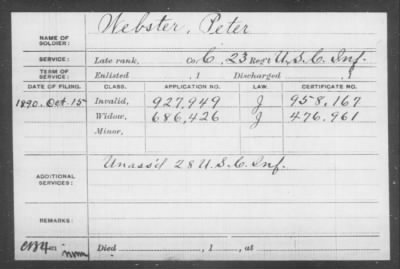 NAME OF SOLDIER: Webster, Peter
SERVICE: Late rank, Co. C, 23 Reg't U.S.C. Inf.
TERM OF SERVICE: Enlisted , 1 Discharged , 1
DATE OF FILING. CLASS. APPLICATION NO. LAW. CERTIFICATE NO.
1890. Oct. 15 Invalid, 927,949 J 958,167
Widow, 686,426 J 476,961
Minor,
ADDITIONAL SERVICES: Unass'd 28 U.S.C. Inf.
REMARKS:
Died , 1 , at